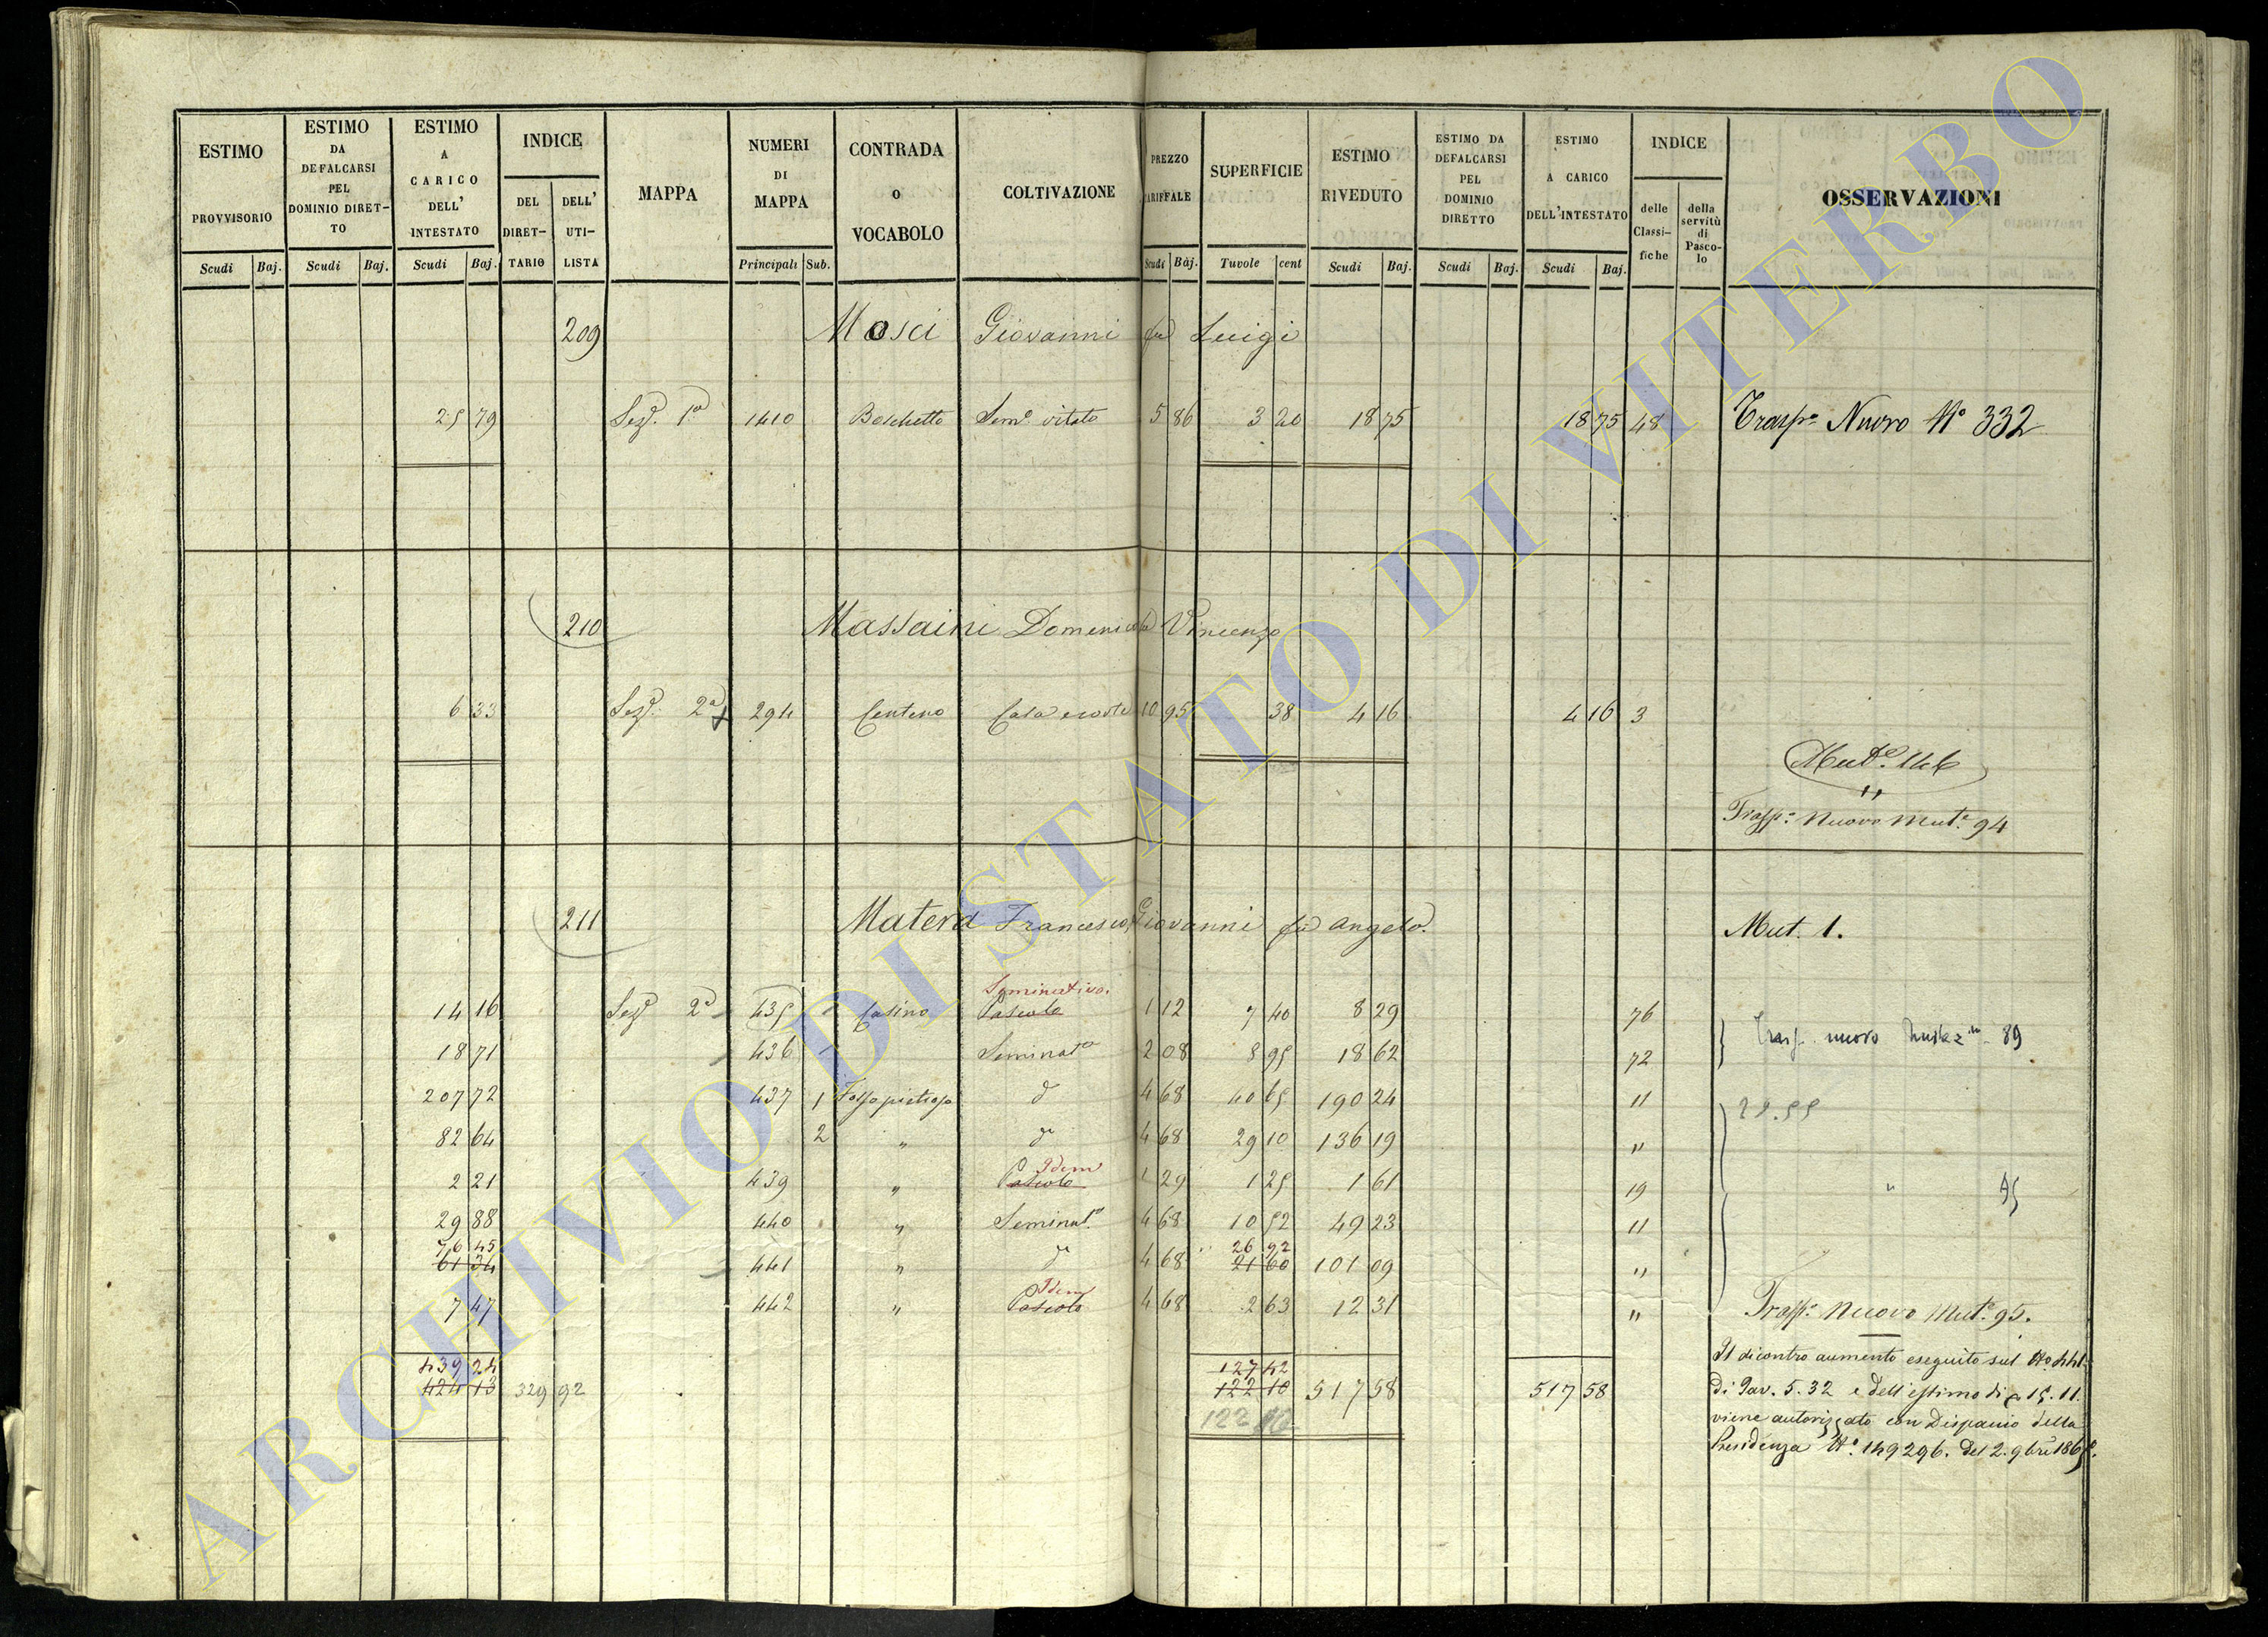 ESTIMO PROVVISORIO
ESTIMO DA DEFALCARSI PEL DOMINIO DIRET-TO
ESTIMO A CARICO DELL' INTESTATO
INDICE
DEL DIRET-TARIO
DELL' UTI-LISTA
MAPPA
NUMERI DI MAPPA
CONTRADA O VOCABOLO
COLTIVAZIONE
PREZZO TARIFFALE
SUPERFICIE
ESTIMO RIVEDUTO
ESTIMO DA DEFALCARSI PEL DOMINIO DIRETTO
ESTIMO A CARICO DELL'INTESTATO
INDICE
delle Classi-fiche
della servitù di Pasco-lo
OSSERVAZIONI
Scudi Baj. Scudi Baj. Scudi Baj. Principali Sub. Scudi Baj. Tavole cent Scudi Baj. Scudi Baj. Scudi Baj.
209 Mosci Giovanni fu Luigi
25 79 Sez.e 1.a 1410 Boschetto Sem.o vitato 5 86 3 20 18 75 18 75 48 Trasp.o Nuovo N.o 332
210 Massaini Domenico fu Vincenzo
6 33 Sez.e 2.a 294 Centeno Casa e corte 10 95 38 4 16 4 16 3
Mut.e 146
Trasp.o Nuovo Mut.e 94
211 Matera Francesco, Giovanni fu Angelo. Mut. 1.
Seminativo.
14 16 Sez.e 2.a 435 Casino Pascolo 1 12 7 40 8 29 76
Trasp. nuovo 89
18 71 436 Seminat.o 2 08 8 95 18 62 72
207 72 437 1 Fossopietroso d.o 4 68 40 65 190 24 11
82 64 2 " d.o 4 68 29 10 136 19 "
Idem
2 21 439 " Pascolo 1 29 1 25 1 61 19 "
29 88 440 " Seminat.o 4 68 10 52 49 23 11
76 45 26 92
61 34 441 " d.o 4 68 21 60 101 09 "
Idem
7 47 442 " Pascolo 4 68 2 63 12 31 " Trasp.o Nuovo Mut.e 95.
439 24 127 42
424 13 329 92 122 10 517 58 517 58
122 10
Il dicontro aumento eseguito sul No 441
di Tav. 5.32 e dell'estimo di 15.11.
viene autorizzato con Dispaccio della
Presidenza N.o 149296. del 2. 9bre 1865.
ARCHIVIO DI STATO DI VITERBO